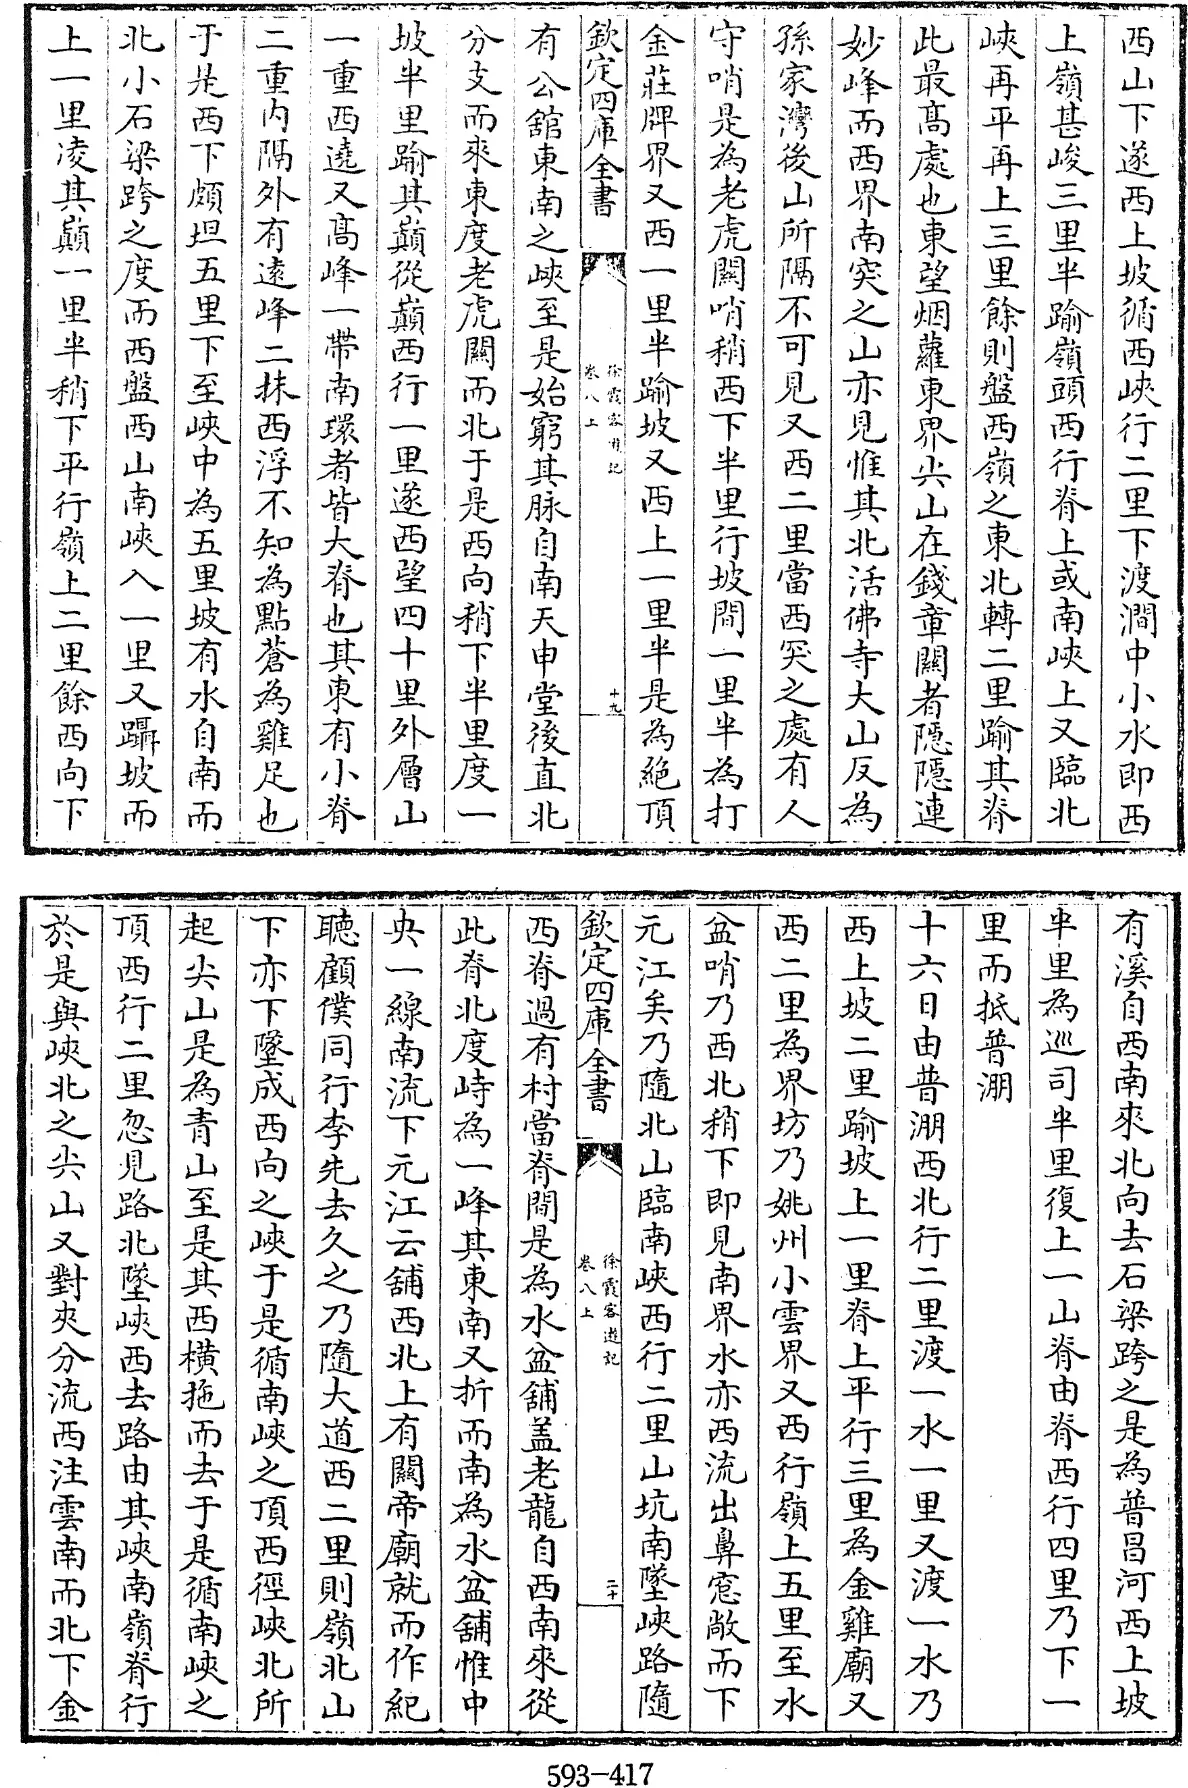 西山下遂西上坡循西峽行二里下渡澗中小水即西
上嶺甚峻三里半踰嶺頭西行脊上或南峽上又臨北
峽再平再上三里餘則盤西嶺之東北轉二里踰其脊
此最高處也東望烟蘿東界尖山在錢章關者隱隱連
妙峰而西界南突之山亦見惟其北活佛寺大山反為
孫家灣後山所隔不可見又西二里當西突之處有人
守哨是為老虎關哨稍西下半里行坡間一里半為打
金莊牌界又西一里半踰坡又西上一里半是為絕頂
欽定四庫全書
徐霞客遊記
卷八上
十九
有公舘東南之峽至是始窮其脉自南天申堂後直北
分支而來東度老虎關而北于是西向稍下半里度一
坡半里踰其巔從巔西行一里遂西望四十里外層山
一重西遶又高峰一帶南環者皆大脊也其東有小脊
二重内隔外有遠峰二抹西浮不知為點蒼為雞足也
于是西下頗坦五里下至峽中為五里坡有水自南而
北小石梁跨之度而西盤西山南峽入一里又躡坡而
上一里凌其巔一里半稍下平行嶺上二里餘西向下
有溪自西南來北向去石梁跨之是為普昌河西上坡
半里為巡司半里復上一山脊由脊西行四里乃下一
里而抵普淜
十六日由普淜西北行二里渡一水一里又渡一水乃
西上坡二里踰坡上一里脊上平行三里為金雞廟又
西二里為界坊乃姚州小雲界又西行嶺上五里至水
盆哨乃西北稍下即見南界水亦西流出鼻窓敞而下
元江矣乃隨北山臨南峽西行二里山坑南墜峽路隨
欽定四庫全書
徐霞客遊記
卷八上
二十
西脊過有村當脊間是為水盆舖盖老龍自西南來從
此脊北度峙為一峰其東南又折而南為水盆舖惟中
央一線南流下元江云舖西北上有關帝廟就而作紀
聽顧僕同行李先去久之乃隨大道西二里則嶺北山
下亦下墜成西向之峽于是循南峽之頂西徑峽北所
起尖山是為青山至是其西橫拖而去于是循南峽之
頂西行二里忽見路北墜峽西去路由其峽南嶺脊行
於是與峽北之尖山又對夾分流西注雲南而北下金
593-417